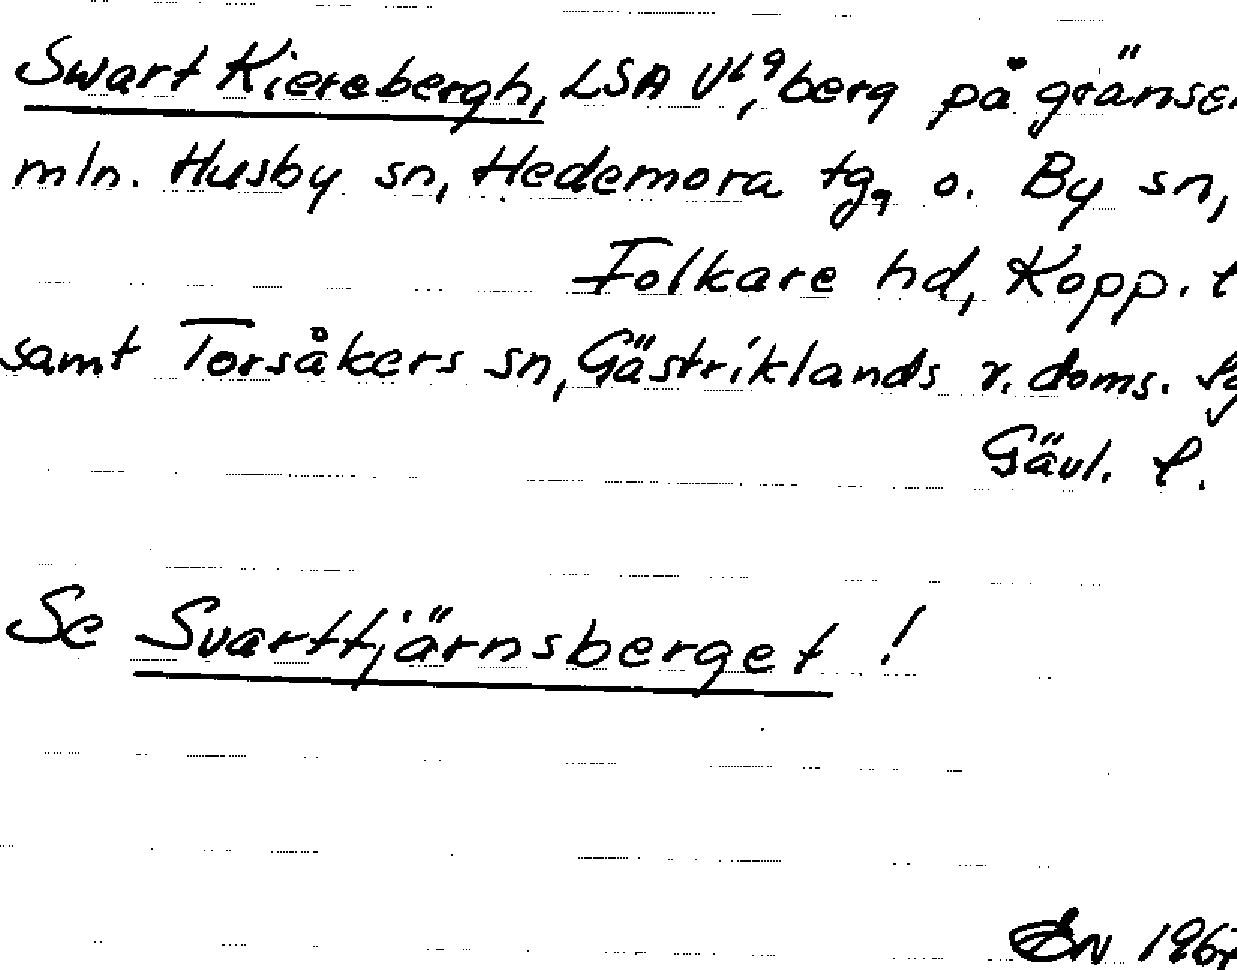 Swart Kierebergh, LSA V¹⁹, berg på gränsen
mln. Husby sn, Hedemora tg, o. By sn,
Folkare hd, Kopp. l
samt Torsåkers sn, Gästriklands v. doms. tg
Gävl. l.
Se Svarttjärnsberget !